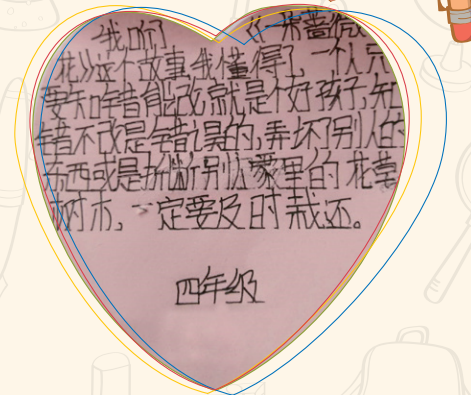 我听 《一朵蔷薇
花》这个故事我懂得了，一个人只
要知错能改,就是个好孩子,知
错不改是错误的,弄坏了别人的
东西或是折断别人家里的花草
树木,一定要及时栽还。
四年级